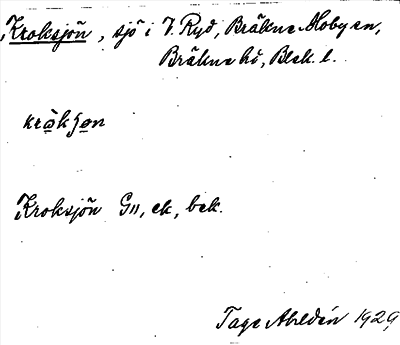 Kroksjön, sjö i V. Ryd, Bräkne Hoby sn,
Bräkne hd, Blek. l.
Kroksjön G11, ek, bek.
Tage Ahldén 1929